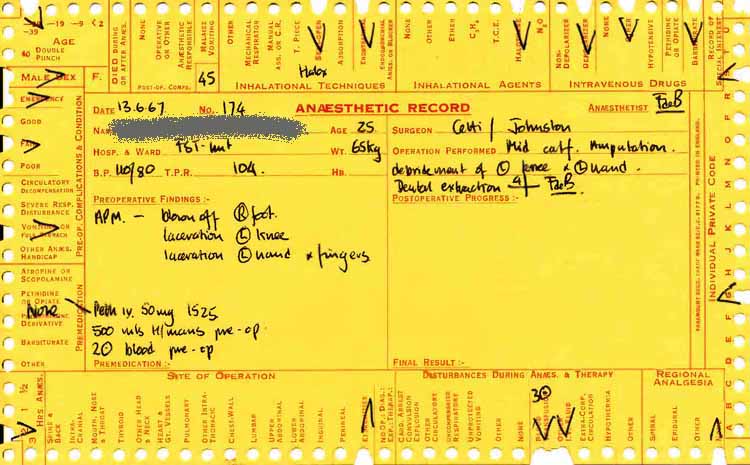 -39 -19 -9 <2
40 DOUBLE PUNCH
AGE
DIED DURING OR AFTER ANÆS.
NONE
OPERATIVE OR OTHER
ANÆSTHETIC RESPONSIBLE
MALAISE VOMITING
OTHER
MECHANICAL RESPIRATOR
MANUAL ASS. OR C.R.
T. PIECE
ABSORPTION
NONE
OTHER
ETHER
C₃H₆
T.C.E.
N₂O
NON-DEPOLARIZER
NONE
HYPOTENSIVE
PETHIDINE OR OPIATE
RECORD OF SPECIAL INTEREST
MALE SEX F.
POST-OP. COMPS.
45
Halox
INHALATIONAL TECHNIQUES
INHALATIONAL AGENTS
INTRAVENOUS DRUGS
EMERGENCY
GOOD
FAIR
POOR
CIRCULATORY DECOMPENSATION
SEVERE RESP. DISTURBANCE
VOMITING OR FULL STOMACH
OTHER ANÆS. HANDICAP
PRE-OP. COMPLICATIONS & CONDITION
ATROPINE OR SCOPOLAMINE
PETHIDINE OR OPIATE
None
DERIVATIVE
BARBITURATE
OTHER
PREMEDICATION
DATE 13.6.67. No. 174
ANÆSTHETIC RECORD
ANÆSTHETIST
AGE 25
SURGEON Cetti / Johnston
HOSP. & WARD
WT. 65kg
OPERATION PERFORMED Mid calf. Amputation.
B.P. 110/80 T.P.R. 104. HB.
debridement of Ⓛ knee & Ⓛ hand.
Dental extraction
PREOPERATIVE FINDINGS :-
POSTOPERATIVE PROGRESS :-
APM. — blown off Ⓡ foot.
laceration Ⓛ knee
laceration Ⓛ hand & fingers
Peth iv. 50mg 1525
500 mls H/mans pre-op.
blood pre-op
PREMEDICATION :-
FINAL RESULT :-
PRINTED IN ENGLAND.
INDIVIDUAL PRIVATE CODE
A B C D E F G H I J K L M N O P
HRS. ANÆS.
½ 1 1½ 2
SITE OF OPERATION
SPINE & BACK
INTRA-CRANIAL
MOUTH, NOSE & THROAT
THYROID
OTHER HEAD & NECK
HEART & GT. VESSELS
PULMONARY
OTHER INTRA-THORACIC
CHEST-WALL
LUMBAR
UPPER ABDOMINAL
LOWER ABDOMINAL
INGUINAL
PERINEAL
EXTREMITIES
DISTURBANCES DURING ANÆS. & THERAPY
CARD. ARREST
CONVULSION EXPLOSION
OTHER CIRCULATORY
UNEXPECTED RESPIRATORY
UNEXPECTED VOMITING
OTHER
NONE
EXTRA-CORP. CIRCULATION
HYPOTHERMIA
OTHER
NONE
REGIONAL ANALGESIA
SPINAL
EPIDURAL
OTHER